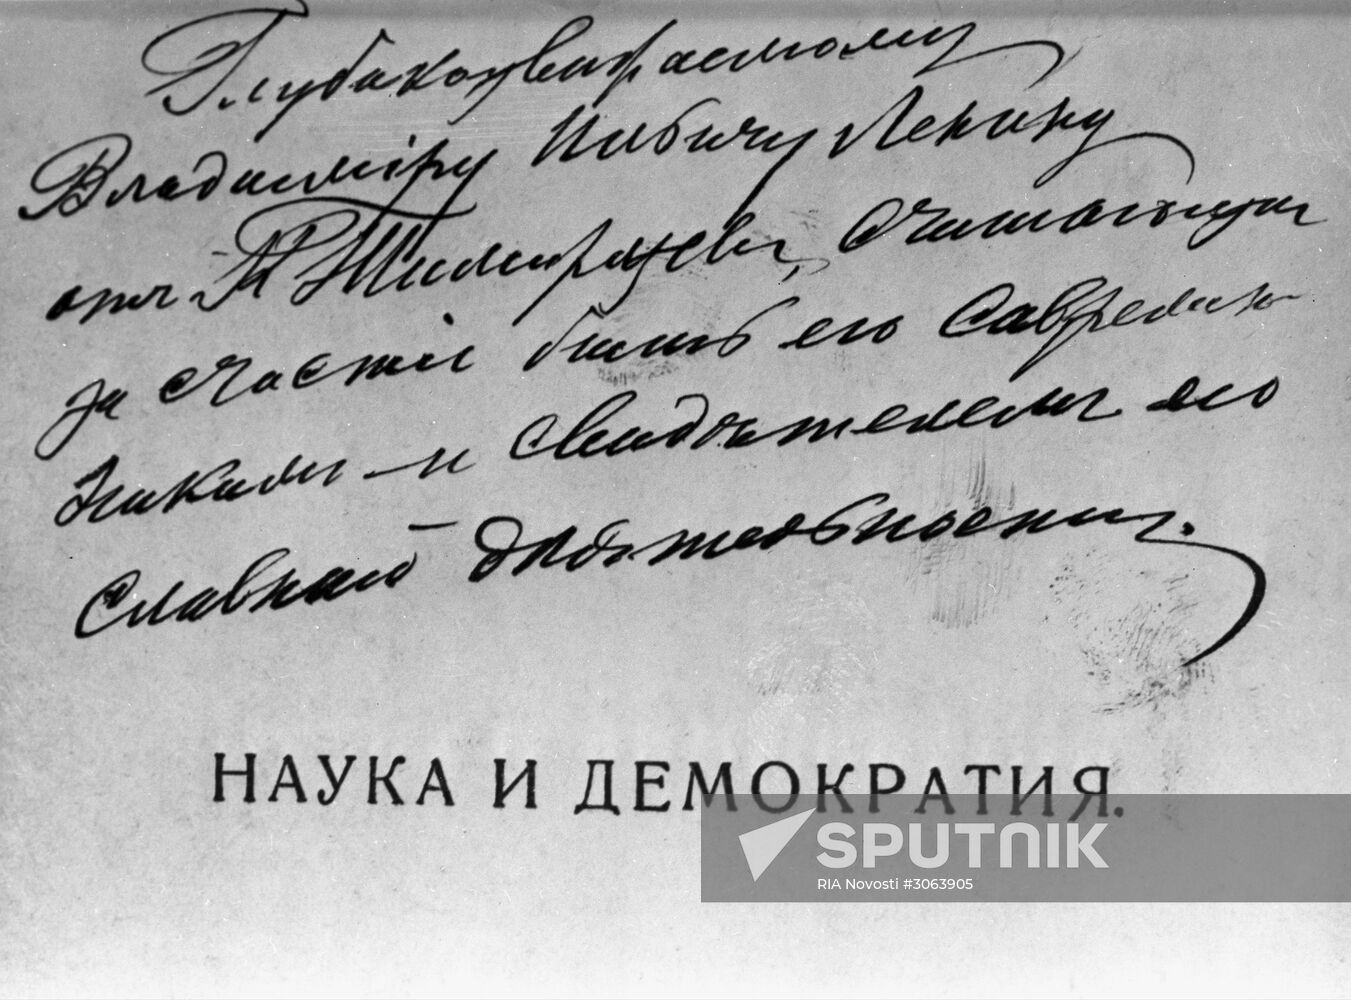 Глубокоуважаемому
Владиміру Ильичу Ленину
отъ К Тимирязева, считающаго
за счастье быть его современ-
никомъ и свидѣтелемъ его
славной дѣятельности.
НАУКА И ДЕМОКРАТИЯ.
SPUTNIK
RIA Novosti #3063905